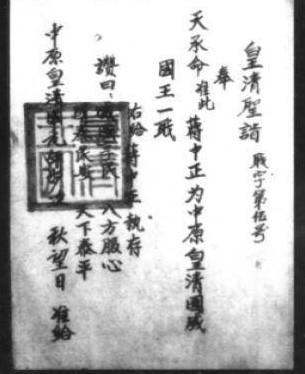 皇清聖誥 职字第伍号
奉
天承命准此 蔣中正为中原皇清國威
國王一职
右給蔣中正執存
讚曰 民 八方服心
民 天下泰平
中原皇清 元 秋望日 准給